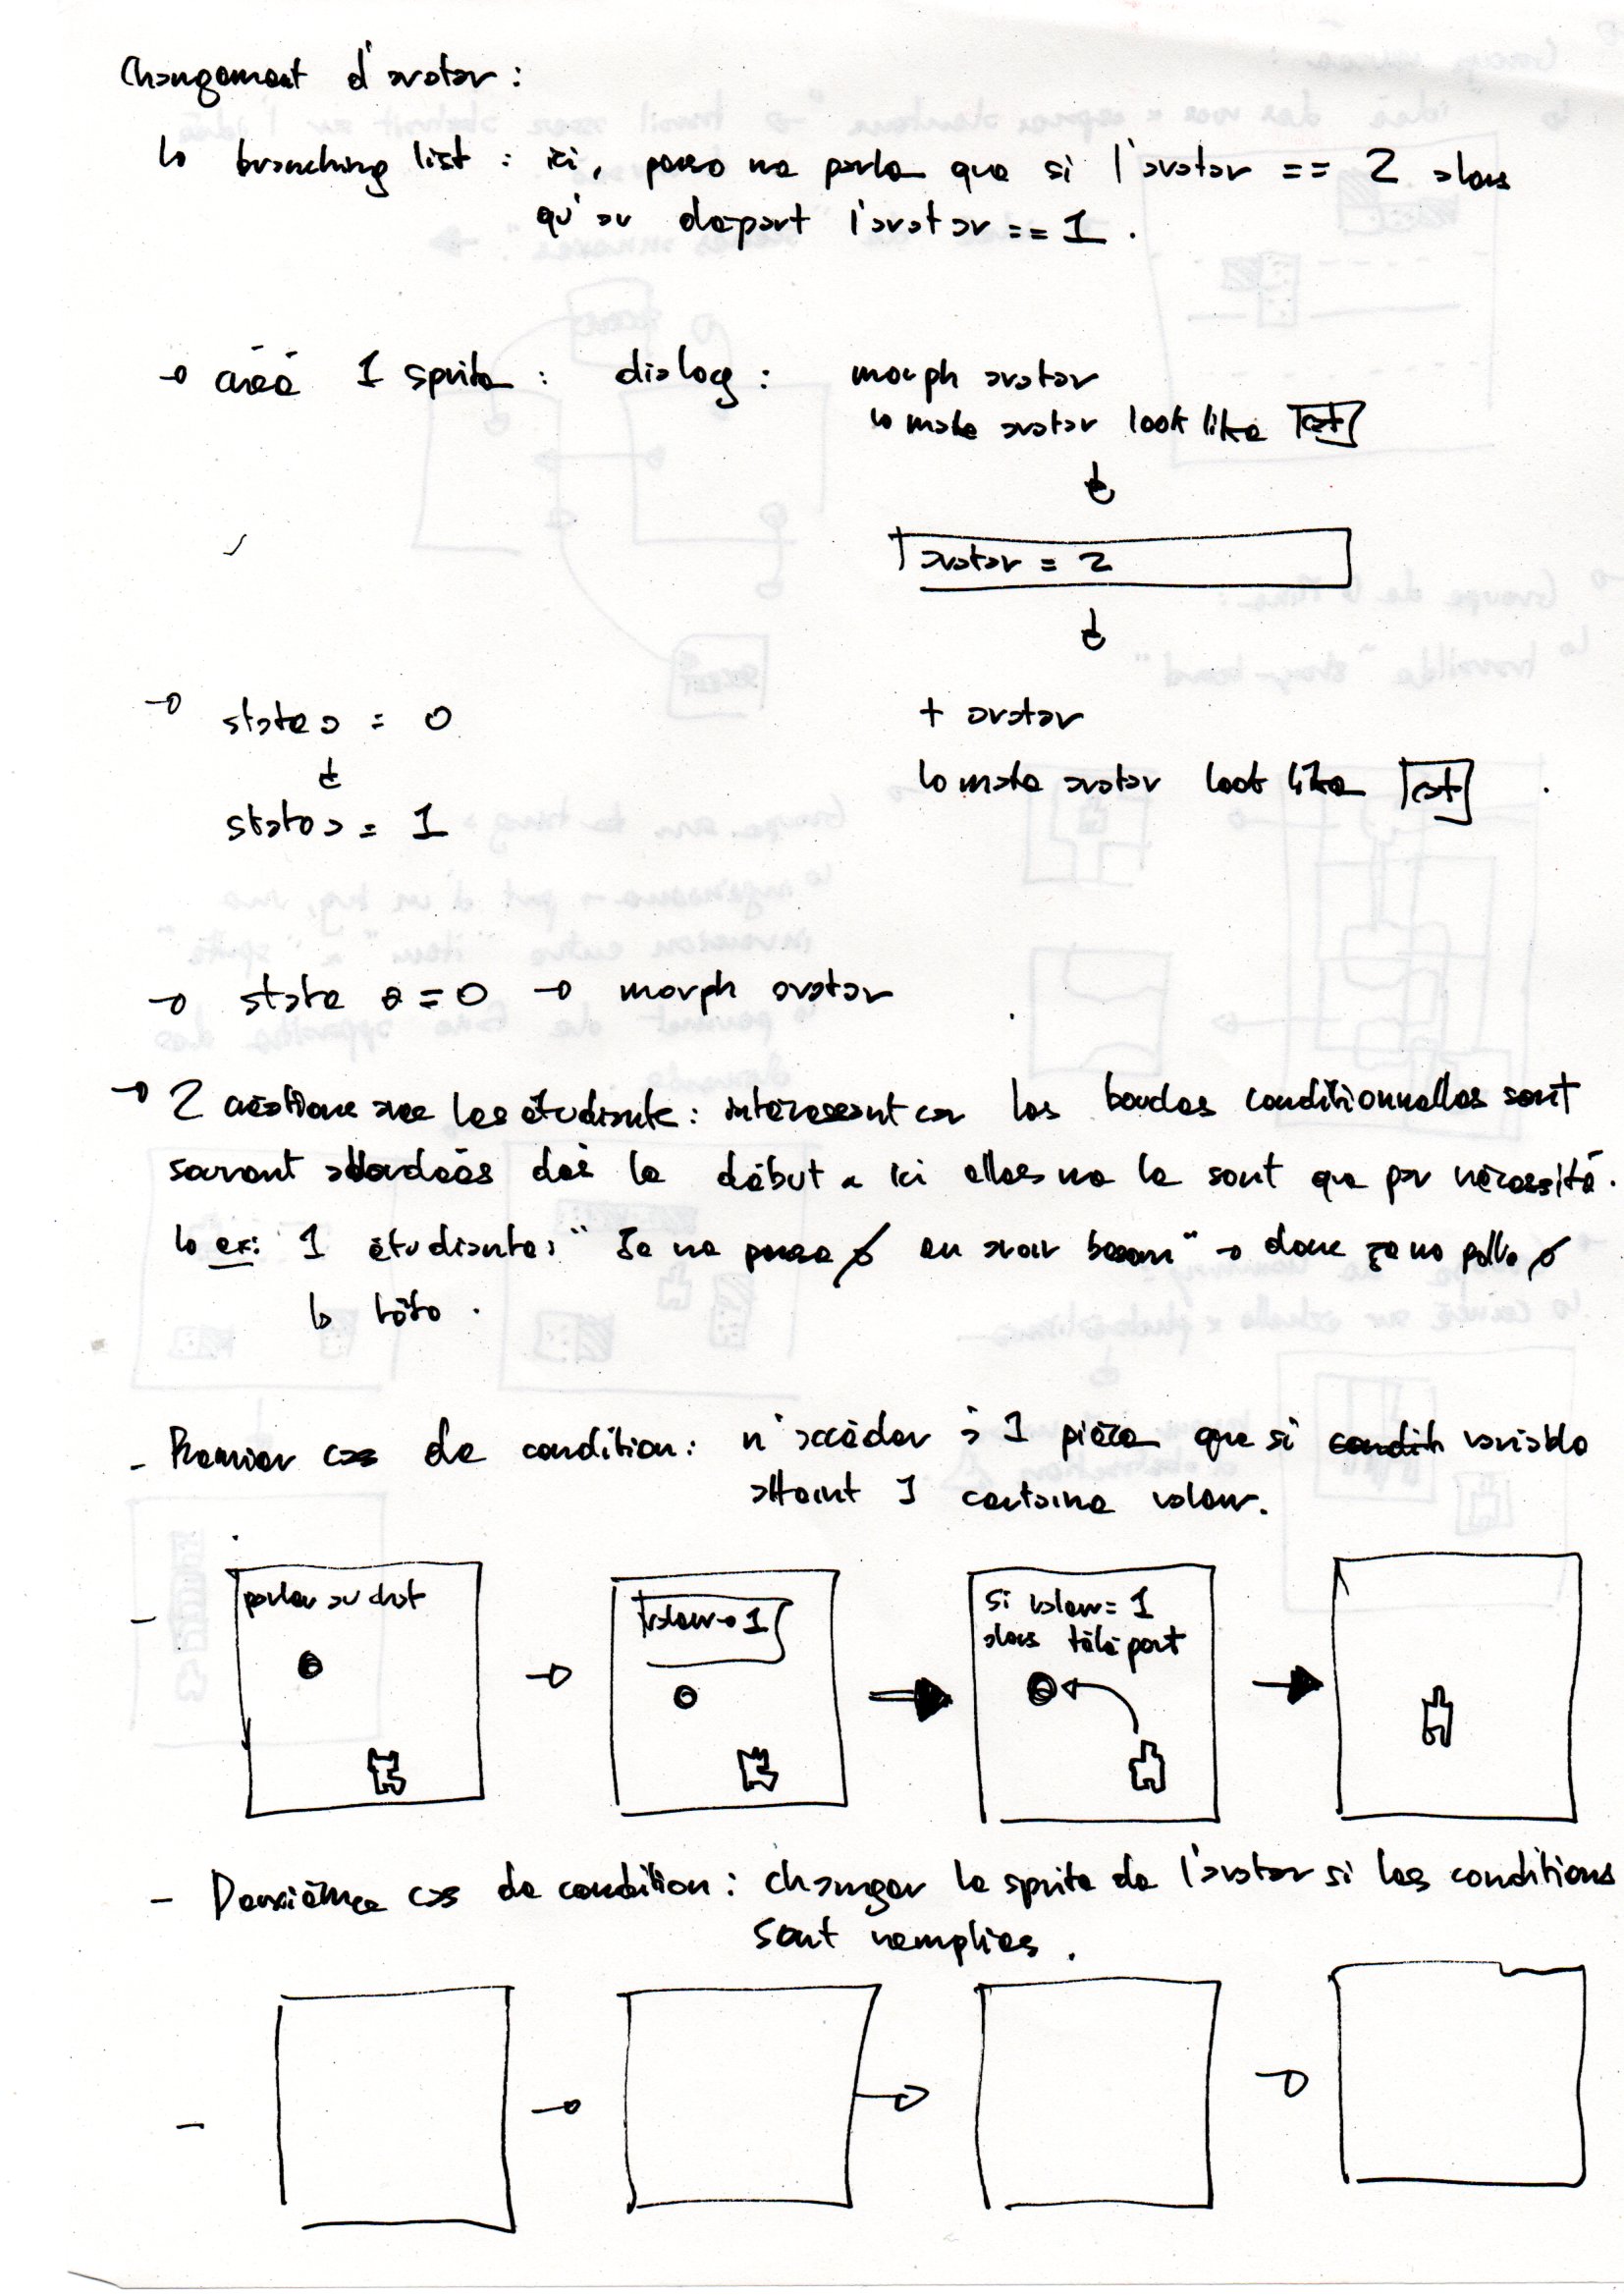 Changement d'avatar :
↳ branching list : ici, perso ne parle que si l'avatar == 2 alors
qu'au départ l'avatar == 1 .
→ créé 1 sprite : dialog : morph avatar
↳ make avatar look like cat
↓
avatar = 2
↓
→ state a = 0
+ avatar
↓
↳ make avatar look like cat
state a = 1
→ state a = 0 → morph avatar
→ 2 créations avec les étudiants : intéressant car les boucles conditionnelles sont
souvent abordées dès le début ici elles ne le sont que par nécessité.
↳ ex: 1 étudiante : " Je ne pense ∅ en avoir besoin " → donc ça ne ∅
↳
- Premier cas de condition : n'accéder à 1 pièce que si condit variable
atteint 1 certaine valeur.
- parler au chat → valeur → 1 → si valeur = 1
alors téléport →
- Deuxième cas de condition : changer le sprite de l'avatar si les conditions
sont remplies .